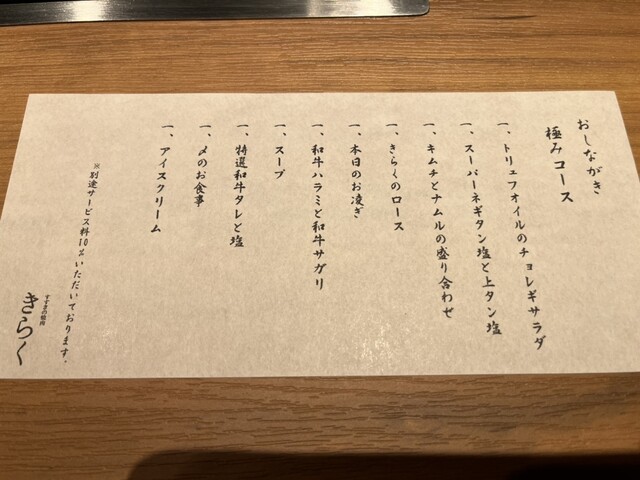 おしながき
極みコース
一、トリュフオイルのチョレギサラダ
一、スーパーネギタン塩と上タン塩
一、キムチとナムルの盛り合わせ
一、きらくのロース
一、本日のお凌ぎ
一、和牛ハラミと和牛サガリ
一、スープ
一、特選和牛タレと塩
一、〆のお食事
一、アイスクリーム
※別途サービス料10%いただいております。
すすきの焼肉
きらく